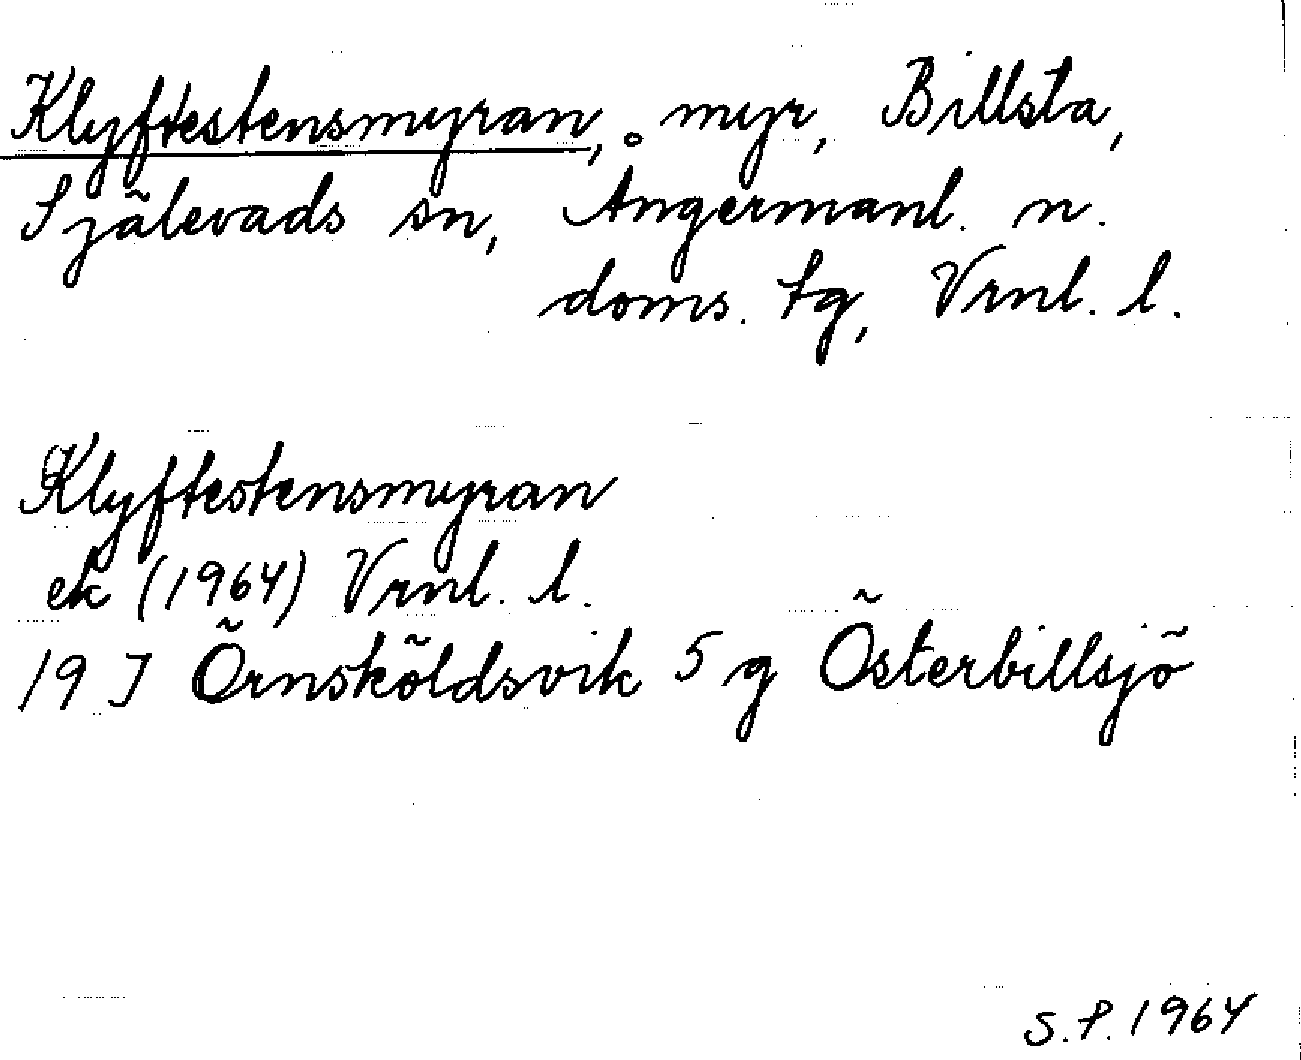 Klyftestensmyran, myr, Billsta,
Själevads sn, Ångermanl. n.
doms. sg, Vrnl. l.
Klyftestensmyran
ek (1964) Vrnl. l.
19 J Örnsköldsvik 5 g Österbillsjö
S.P. 1964